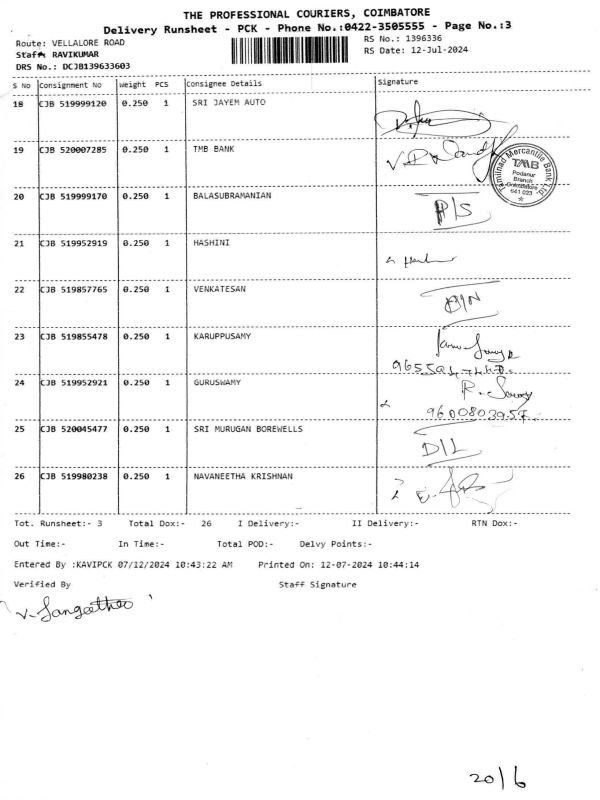 THE PROFESSIONAL COURIERS, COIMBATORE
Delivery Runsheet - PCK - Phone No.:0422-3505555 - Page No.:3
Route: VELLALORE ROAD
RS No.: 1396336
Staff: RAVIKUMAR
RS Date: 12-Jul-2024
DRS No.: DCJB139633603
S No Consignment No Weight PCS Consignee Details Signature
18 CJB 519999120 0.250 1 SRI JAYEM AUTO
19 CJB 520007285 0.250 1 TMB BANK
Tamilnad Mercantile Bank Ltd.
TMB
Podanur
Branch
Coimbatore
641 023
20 CJB 519999170 0.250 1 BALASUBRAMANIAN P/S
21 CJB 519952919 0.250 1 HASHINI
22 CJB 519857765 0.250 1 VENKATESAN
23 CJB 519855478 0.250 1 KARUPPUSAMY
24 CJB 519952921 0.250 1 GURUSWAMY
25 CJB 520045477 0.250 1 SRI MURUGAN BOREWELLS D/L
26 CJB 519980238 0.250 1 NAVANEETHA KRISHNAN
Tot. Runsheet:- 3 Total Dox:- 26 I Delivery:- II Delivery:- RTN Dox:-
Out Time:- In Time:- Total POD:- Delvy Points:-
Entered By :KAVIPCK 07/12/2024 10:43:22 AM Printed On: 12-07-2024 10:44:14
Verified By Staff Signature
V. Sangeetha
20/6